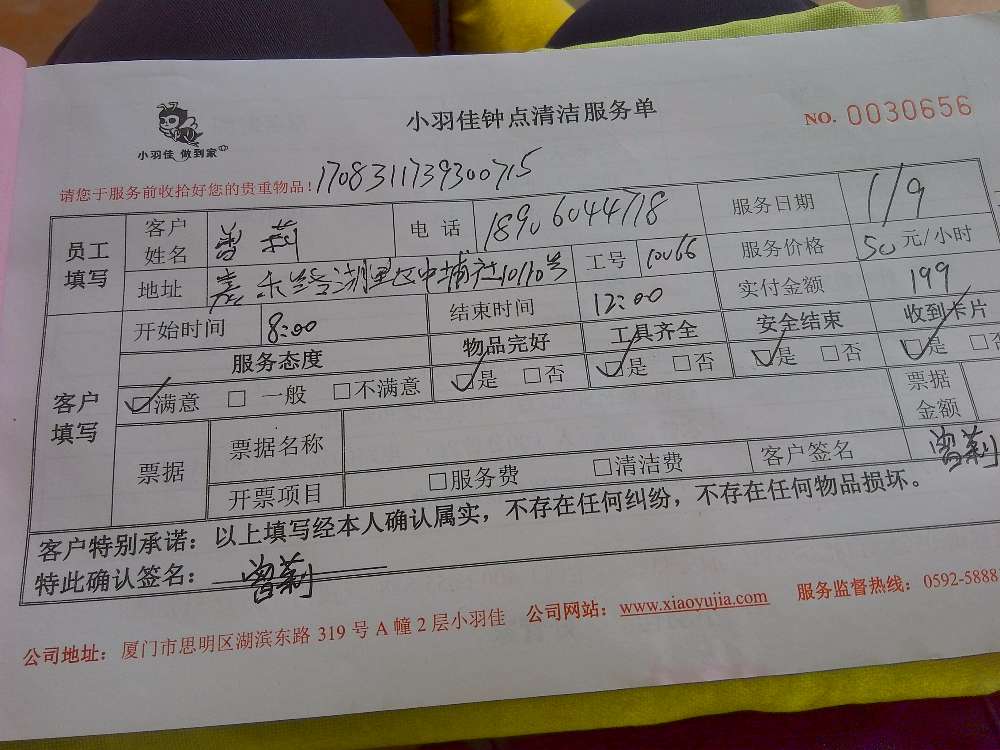 小羽佳钟点清洁服务单
NO. 0030656
小羽佳 做到家
请您于服务前收拾好您的贵重物品! 1708311739300715
员工填写 客户姓名 曾莉 电话 18906044778 服务日期 1/9
地址 中埔社10110号 工号 10066 服务价格 50元/小时
客户填写 开始时间 8:00 结束时间 12:00 实付金额 199
服务态度 物品完好 工具齐全 安全结束 收到卡片
☑满意 □一般 □不满意 ☑是 □否 ☑是 □否 ☑是 □否 ☑是 □否
票据 票据名称 票据金额
开票项目 □服务费 □清洁费 客户签名 曾莉
客户特别承诺：以上填写经本人确认属实，不存在任何纠纷，不存在任何物品损坏。
特此确认签名： 曾莉
公司地址：厦门市思明区湖滨东路 319 号 A 幢 2 层小羽佳 公司网站：www.xiaoyujia.com 服务监督热线：0592-5888